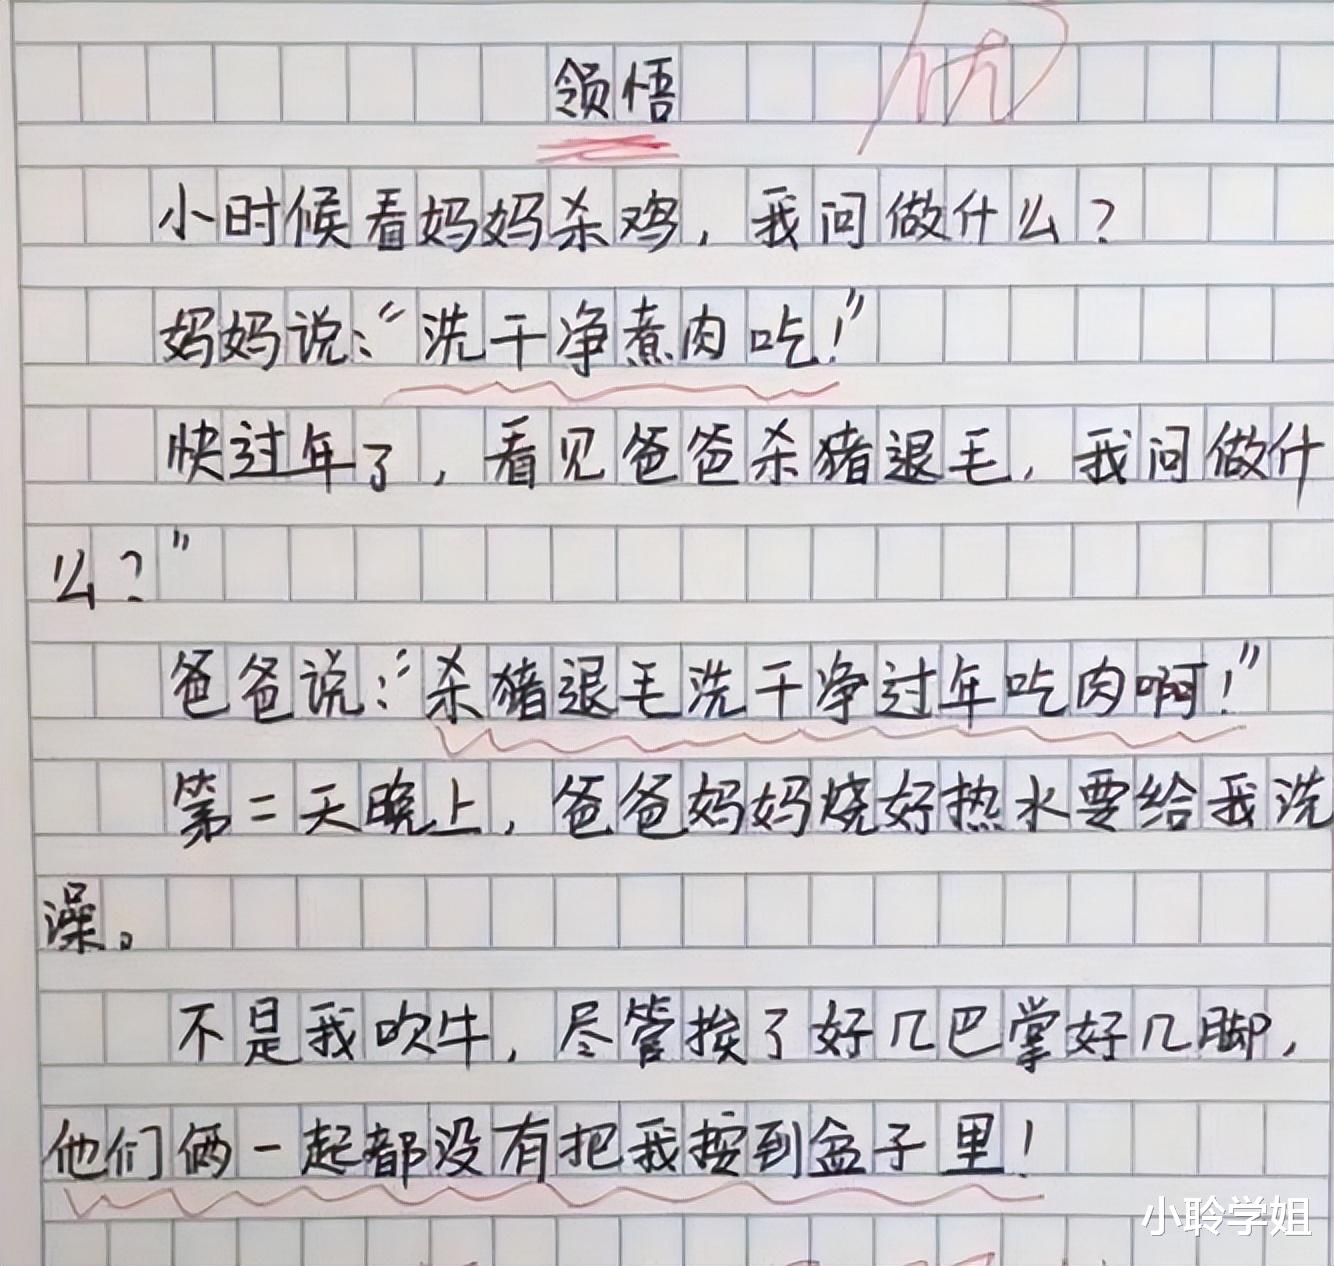 优
领悟
小时候看妈妈杀鸡，我问做什么？
妈妈说：“洗干净煮肉吃！”
快过年了，看见爸爸杀猪退毛，我问做什
么？”
爸爸说：“杀猪退毛洗干净过年吃肉啊！”
第二天晚上，爸爸妈妈烧好热水要给我洗
澡。
不是我吹牛，尽管挨了好几巴掌好几脚，
他们俩一起都没有把我按到盆子里！
小聆学姐